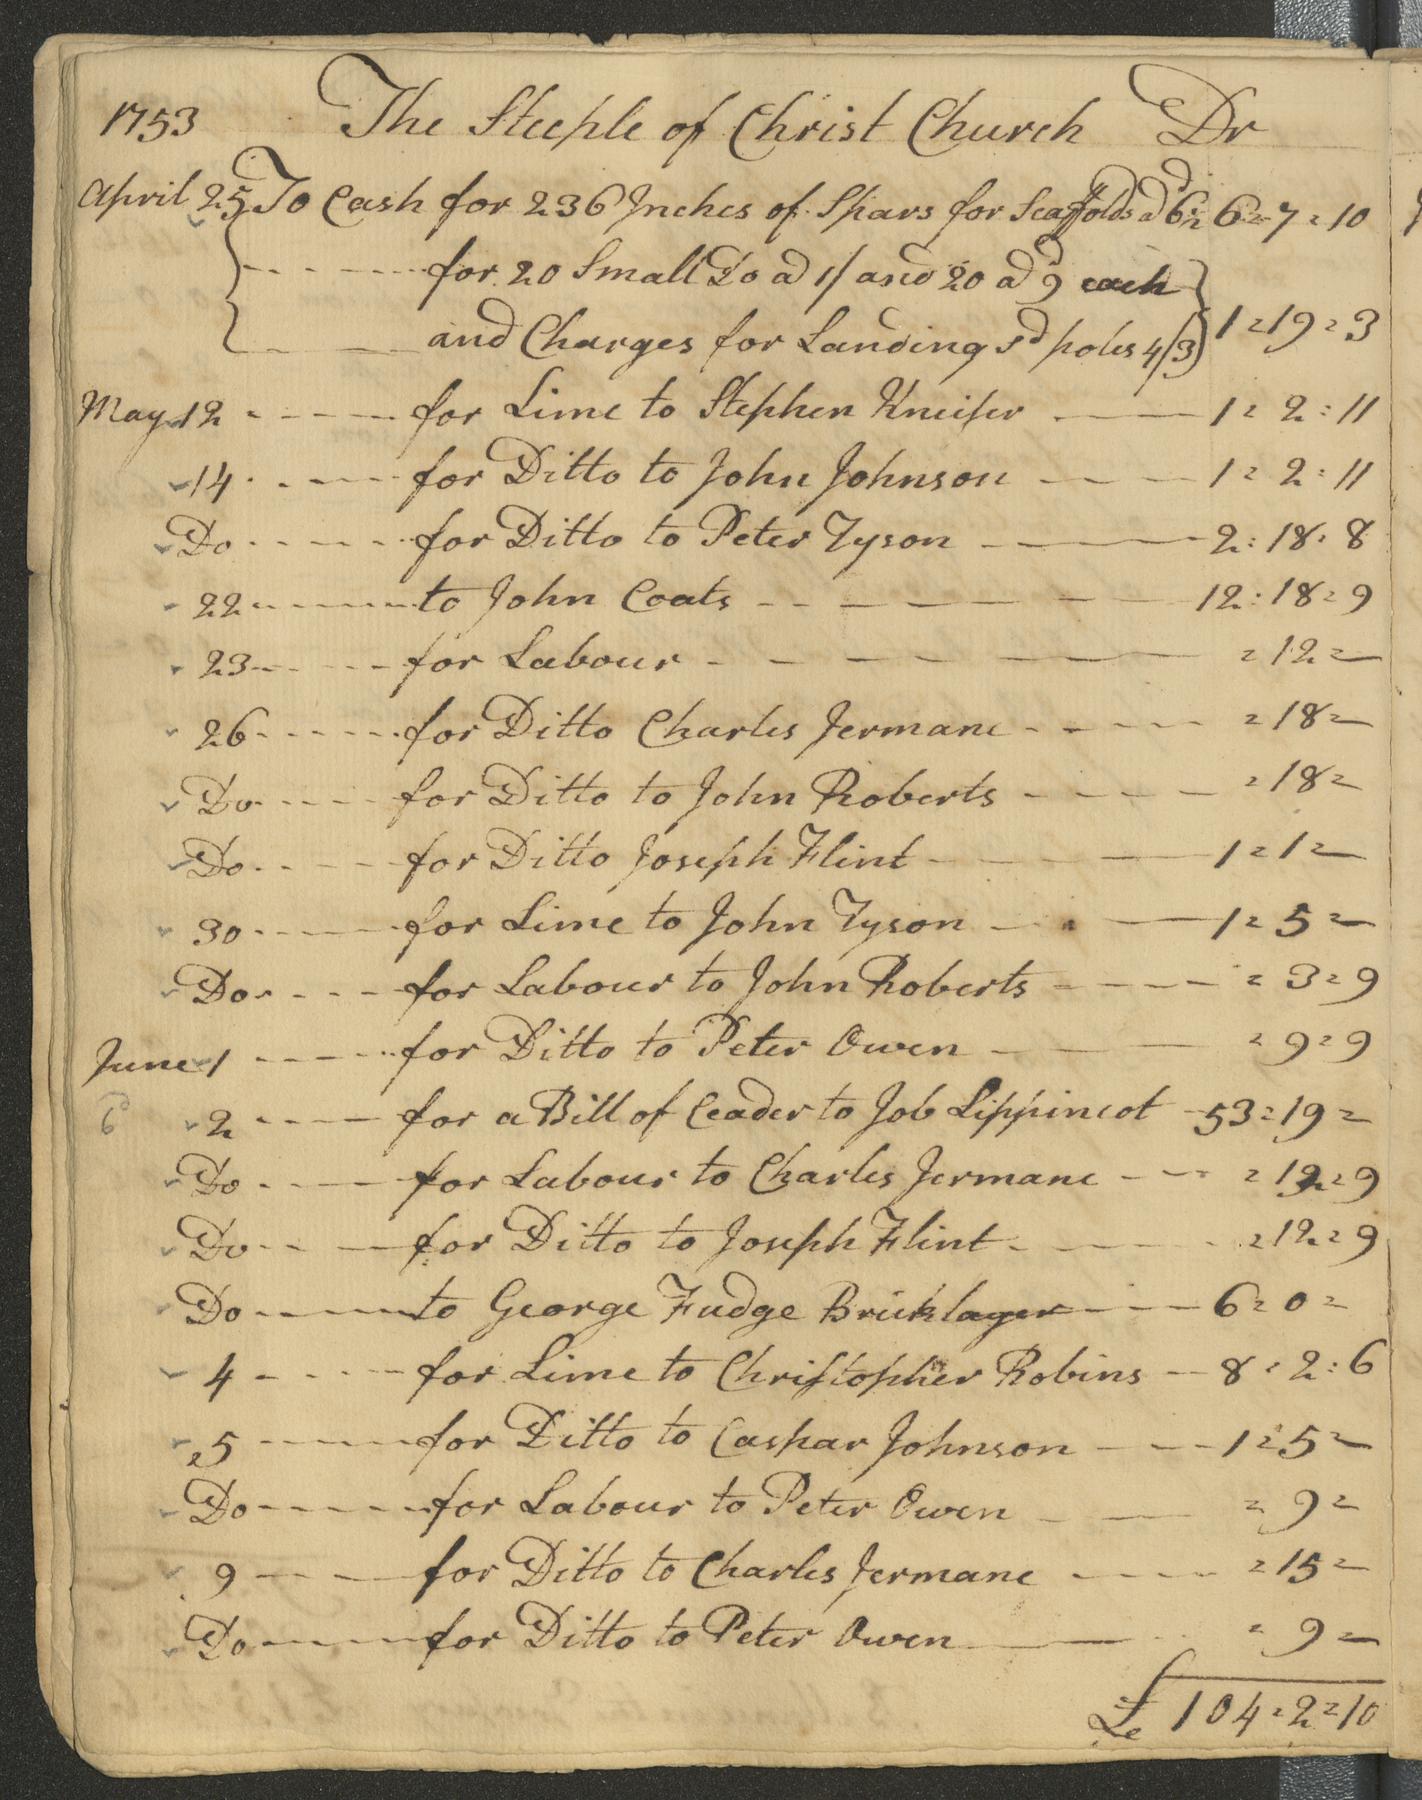 1753 The Steeple of Christ Church Dr
April 25 To Cash for 236 Inches of Spars for Scaffolds a 6½d 6=7=10
for 20 Small Do a 1/ and 20 a 9d each
and Charges for Landing sd poles 4/3 1=19=3
May 12 for Lime to Stephen Kneiser 1=2:11
14 for Ditto to John Johnson 1=2:11
Do for Ditto to Peter Tyson 2:18:8
22 to John Coats 12:18=9
23 for Labour =12=
26 for Ditto Charles Jermane =18=
Do for Ditto to John Roberts =18=
Do for Ditto Joseph Flint 1=1=
30 for Lime to John Tyson 1=5=
Do for Labour to John Roberts =3=9
June 1 for Ditto to Peter Owen =9=9
6 2 for a Bill of Ceader to Job Lippincot 53=19=
Do for Labour to Charles Jermane =12=9
Do for Ditto to Joseph Flint =12=9
Do to George Fudge Bricklayer 6=0=
4 for Lime to Christopher Robins 8=2:6
5 for Ditto to Caspar Johnson 1=5=
Do for Labour to Peter Owen =9=
9 for Ditto to Charles Jermane =15=
Do for Ditto to Peter Owen =9=
£ 104=2=10